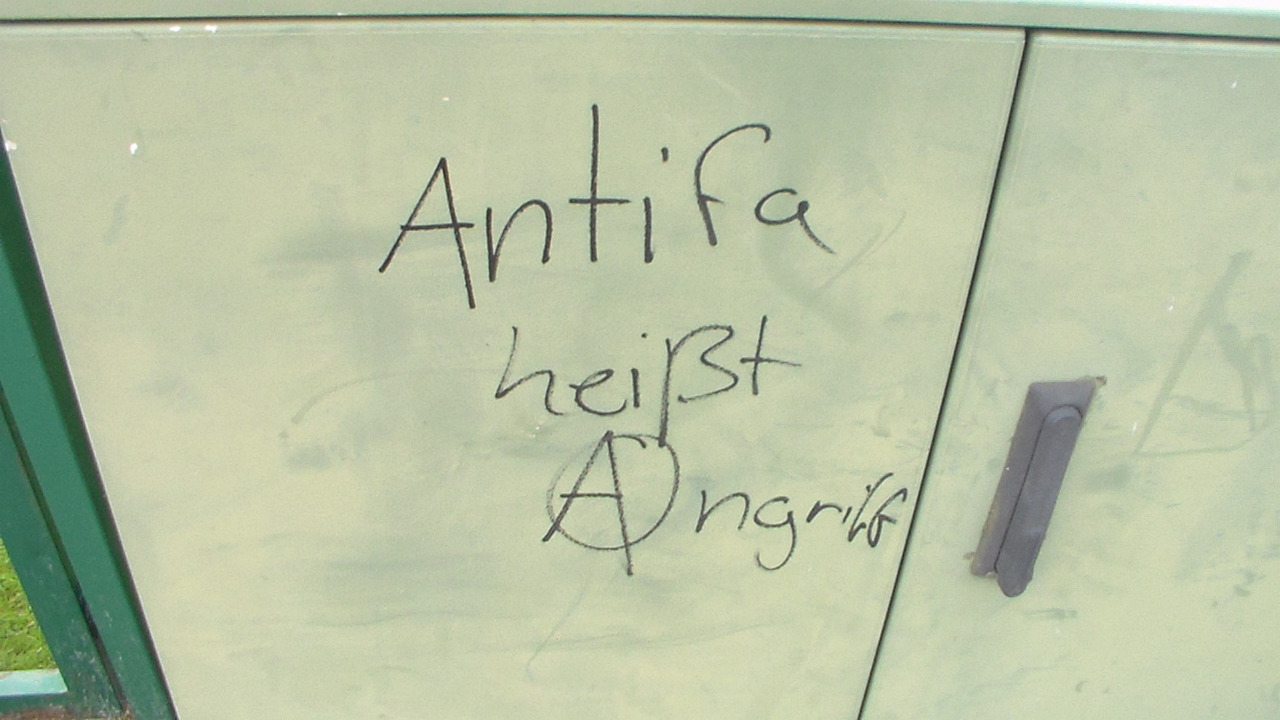 Antifa
heißt
Angriff